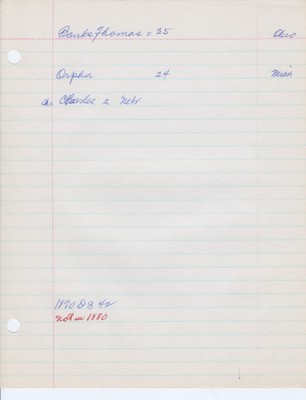 Banks Thomas = 35 Ohio
Orpha 24 Mich
Ch. Charles 2 Nebr
1870 D 8 42
Not in 1880